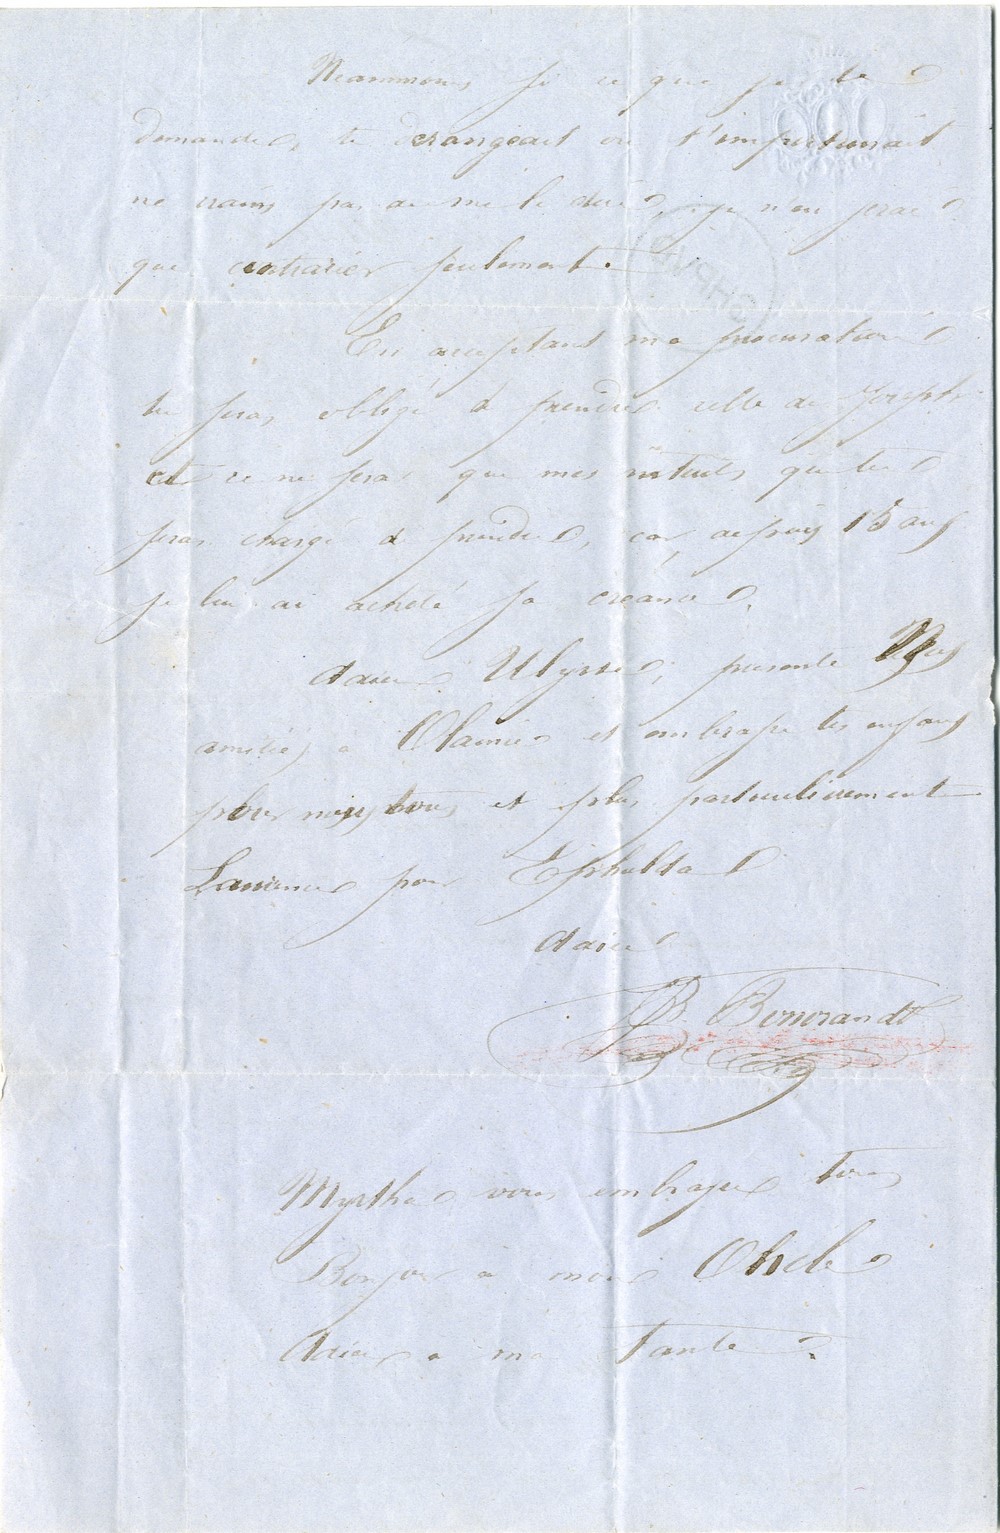 Neanmoins si ce que je te
demande, te derangeait ou t'importunait
ne crains pas de me le dire, je n'en serai
que contrarier seulement.
En acceptant ma procuration
tu seras obligé à prendre celle de Joseph
et ce ne sera que mes intérêts que tu
seras chargé de prendre, car depuis 15 ans
je lui ai acheté sa créance.
Adieu Ulysse, presente Mes
amitiés à et embrasse tes enfants
pour nous tous et plus particulierement
Laurence pour
Adieu
B. Bonnrandt
Myrtha vous embrasse tous
Bonjour a mon Oncle
Adieu a ma Tante.